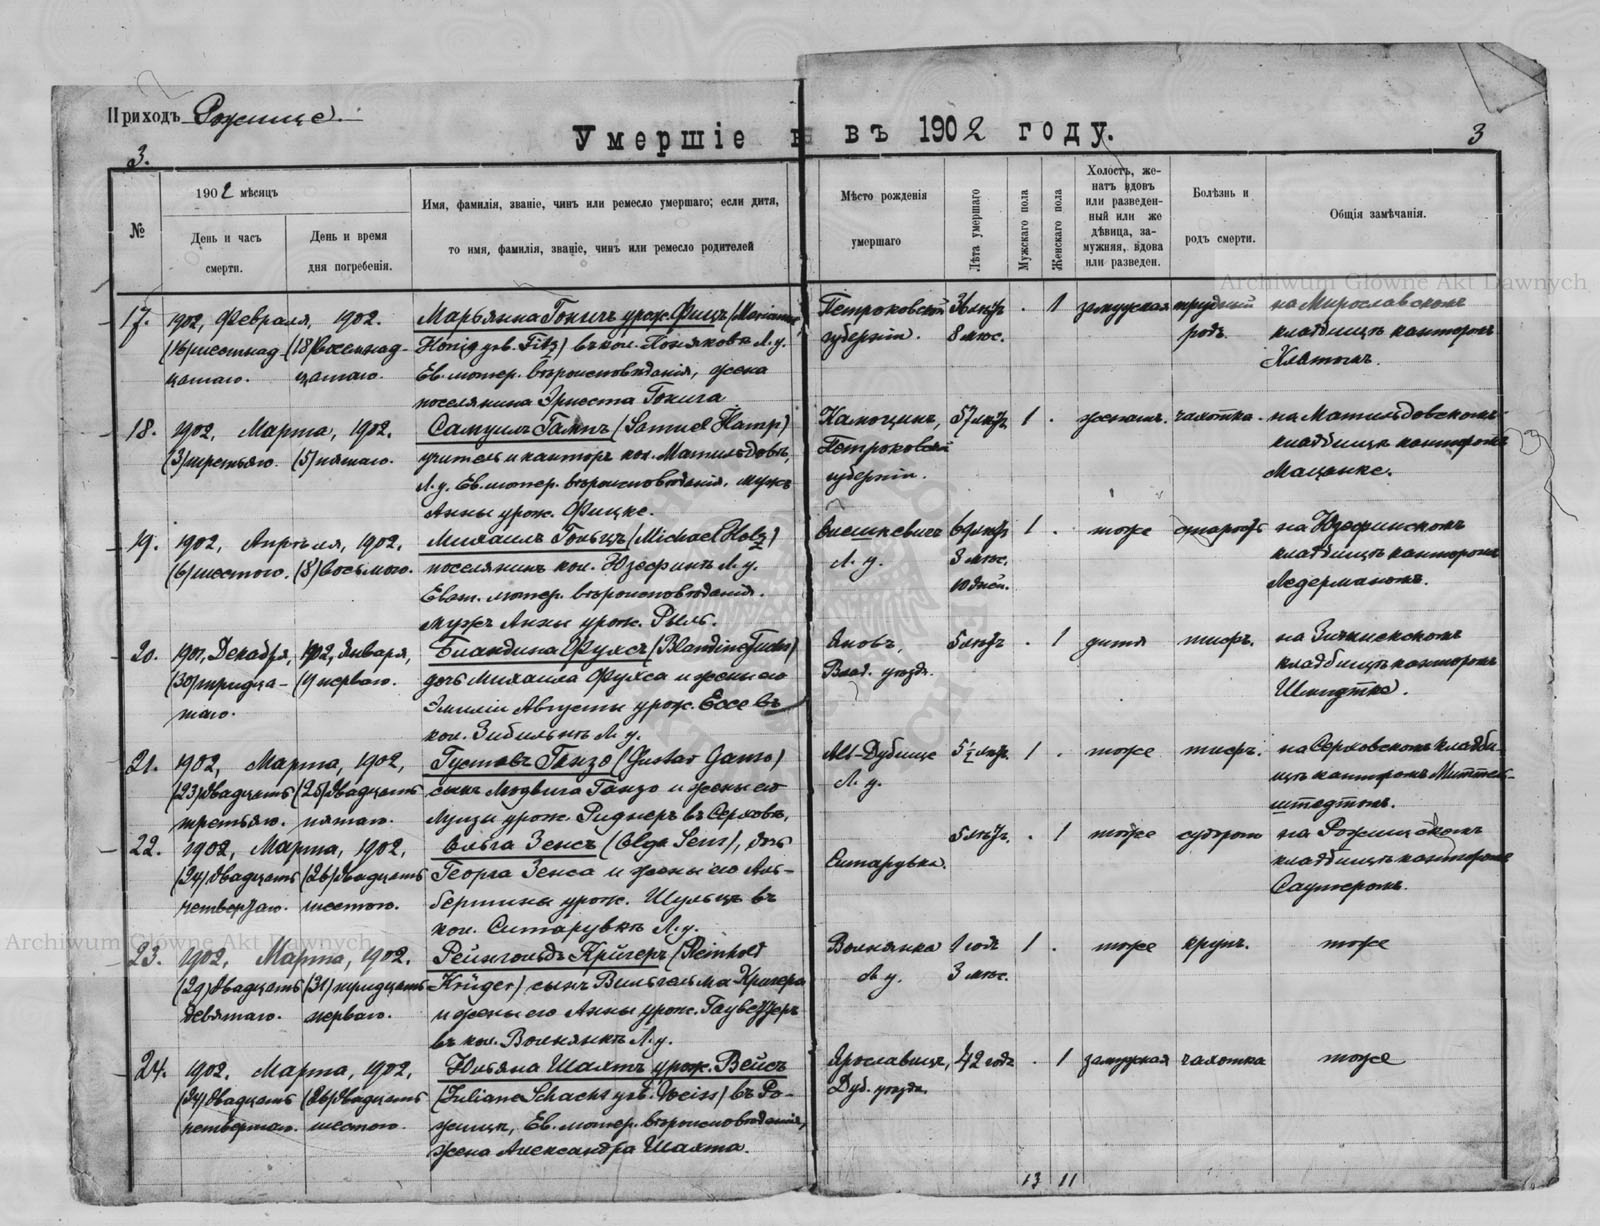 Приходъ Рожище.
Умершіе въ 1902 году.
3.
3
№
1902 мѣсяцъ
День и часъ смерти.
День и время дня погребенія.
Имя, фамилія, званіе, чинъ или ремесло умершаго; если дитя,
то имя, фамилія, званіе, чинъ или ремесло родителей
Мѣсто рожденія
умершаго
Лѣта умершаго
Мужскаго пола
Женскаго пола
Холостъ, же-
натъ вдовъ
или разведен-
ный или же
дѣвица, за-
мужняя, вдова
или разведен.
Болѣзнь и
родъ смерти.
Общія замѣчанія.
17. 1902, Февраля, 1902. Марьянна Гонигъ урож. Фицъ (Marianne Петроковской 36 лѣтъ . 1 замужная трудный на Мирославскомъ
(16) шестнад- (18) восемнад- Hönig geb. Fitz) въ кол. Поляновкѣ Л. у. губерніи. 8 мѣс. родъ. кладбищѣ канторомъ
цатаго. цатаго. Ев. лютер. вѣроисповѣданія, жена
поселянина Эрнеста Гонига.
18. 1902, Марта, 1902. Самуилъ Гампъ (Samuel Hamp) 57 лѣтъ. 1 . женатъ. чахотка. на Матильдовскомъ
(3) третьяго. (5) пятаго. учитель и канторъ кол. Матильдовъ, Петроковской кладбищѣ канторомъ
Л. у. Ев. лютер. вѣроисповѣданія, мужъ губерніи. Маценке.
Анны урож. Фицке.
19. 1902, Апрѣля, 1902. Михаилъ Гольцъ (Michael Holz) 69 лѣтъ 1 . тоже старость на Юзефинскомъ
(6) шестого. (8) восьмого. поселянинъ кол. Юзефинъ Л. у. Л. у. 3 мѣс. кладбищѣ канторомъ
Еванг. лютер. вѣроисповѣданія. 10 дней. Ледерманомъ.
мужъ Анны урож.
20. 1901, Декабря, 1902, Января, Бландина Фуксъ (Blandine Fuchs) Яновъ, 5 лѣтъ . 1 дитя тифъ. на
(30) тридца- (1) перваго. дочь Михаила Фукса и жены его Влад. уѣзда. кладбищѣ канторомъ
таго. Эмиліи Августы урож. Ессе въ Шмидтке.
кол. Л. у.
21. 1902, Марта, 1902, Густавъ Ганзо (Gustav Ganso) Alt-Дубище 5½ лѣтъ. 1 . тоже тифъ. на Серховскомъ кладби-
(23) двадцать (25) двадцать сынъ Людвига Ганзо и жены его Л. у. щѣ канторомъ Миттель-
третьяго. пятаго. Луизы урож. Риднеръ въ Серховѣ. штедтомъ.
22. 1902, Марта, 1902, Ольга Зенсъ (Olga Sens), дочь 5 лѣтъ. . 1 тоже на Рожищскомъ
(24) двадцать (26) двадцать Георга Зенса и жены его Аль- Ситарувка. кладбищѣ канторомъ
четвертаго. шестого. бертины урож. Шульцъ въ Саутеромъ.
кол. Ситарувкѣ Л. у.
23. 1902, Марта, 1902. Рейнгольдъ Кригеръ (Reinhold Волнянка 1 годъ 1 . тоже крупъ. тоже
(29) двадцать (31) тридцать Krüger) сынъ Вильгельма Кригера Л. у. 3 мѣс.
девятаго. перваго. и жены его Анны урож.
въ кол. Волнянкѣ Л. у.
24. 1902. Марта, 1902, Юльяна Шахтъ урож. Вейсъ Ярославичи, 42 года . 1 замужная чахотка тоже
(24) двадцать (26) двадцать (Juliane Schacht geb. Weiss) въ Ро- Дуб. уѣзда.
четвертаго. шестого. жищѣ, Ев. лютер. вѣроисповѣданія,
жена Александра Шахта.
13 11
Archiwum Główne Akt Dawnych
Archiwum Główne Akt Dawnych